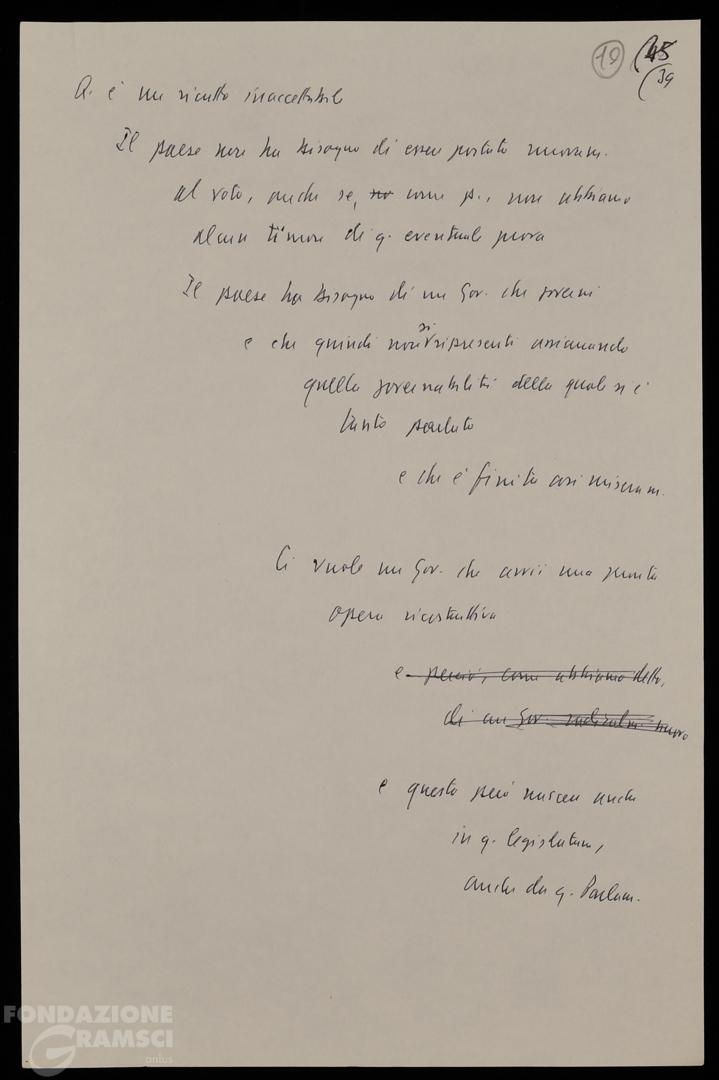 19 (45
(39
Q. è un ricatto inaccettabile
Il paese non ha bisogno di essere portato nuovam.
al voto, anche se, no come p., non abbiamo
alcun timore di q. eventuale prova
Il paese ha bisogno di un Gov. che governi
si
e che quindi non ripresenti assicurando
quella governabilità della quale si è
tanto parlato
e che è finita così miseram.
Ci vuole un Gov. che avvii una
opera ricostruttiva
e perciò, come abbiamo detto,
di un Gov. radicalm. nuovo
e questo può nascere anche
in q. legislatura,
anche da q. Parlam.
FONDAZIONE
GRAMSCI
onlus